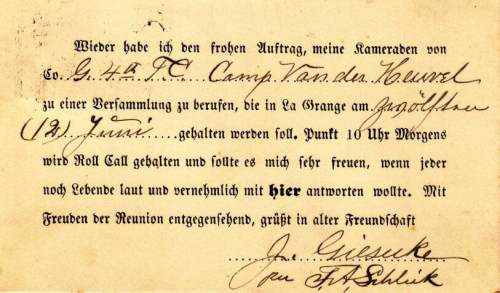 Wieder habe ich den frohen Auftrag, meine Kameraden von
Co. G. 4th T C Camp Van der Heuvel
zu einer Versammlung zu berufen, die in La Grange am zwölften
(12) Juni gehalten werden soll. Punkt 10 Uhr Morgens
wird Roll Call gehalten und sollte es mich sehr freuen, wenn jeder
noch Lebende laut und vernehmlich mit hier antworten wollte. Mit
Freuden der Reunion entgegensehend, grüßt in alter Freundschaft
Giesecke
per